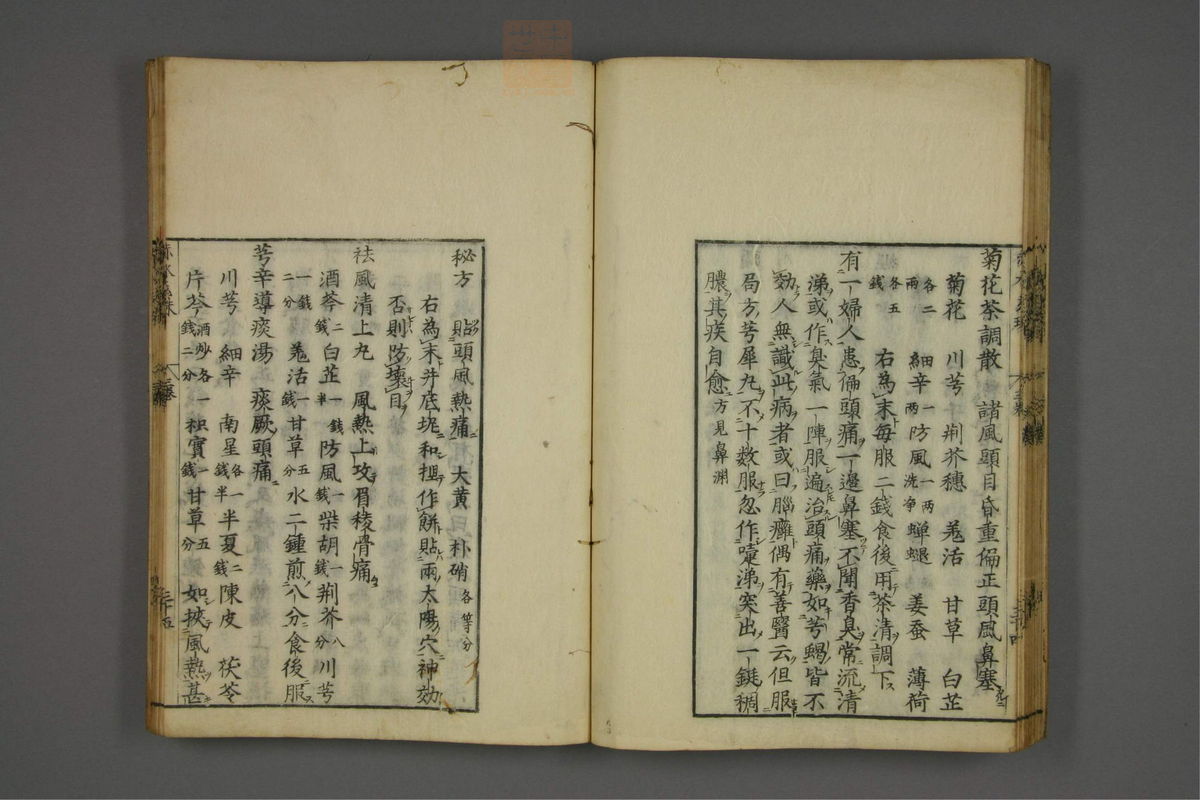 菊花茶調散 諸風頭目昏重偏正頭風鼻塞
菊花 川芎 荊芥穗 羗活 甘草 白芷
各二兩 細辛一兩 防風一兩洗淨 蟬蛻 姜蚕 薄荷
各五錢 右為末每服二錢食後用茶清調下
有一婦人患偏頭痛一邊鼻塞不聞香臭常流清
涕或作臭氣一陣服遍治頭痛藥如芎蝎皆不
効人無識此病者或曰腦癰偶有善醫云但服
局方芎犀丸不十數服忽作嚏涕突出一鋌稠
膿其疾自愈方見鼻淵
秘方 貼頭風熱痛 大黄 朴硝各等分
右為末井底坭和揑作餅貼兩太陽穴神効
否則防壞目
祛風清上丸 風熱上攻眉稜骨痛
酒芩二錢 白芷一錢半 防風一錢 柴胡一錢 荊芥八分 川芎
一錢二分 羗活一錢 甘草五分 水二鍾煎八分食後服
芎辛導痰湯 痰厥頭痛
川芎 細辛 南星各一錢半 半夏二錢 陳皮 茯苓
片芩酒炒各一錢二分 枳實一錢 甘草五分 如挾風熱甚
二十五